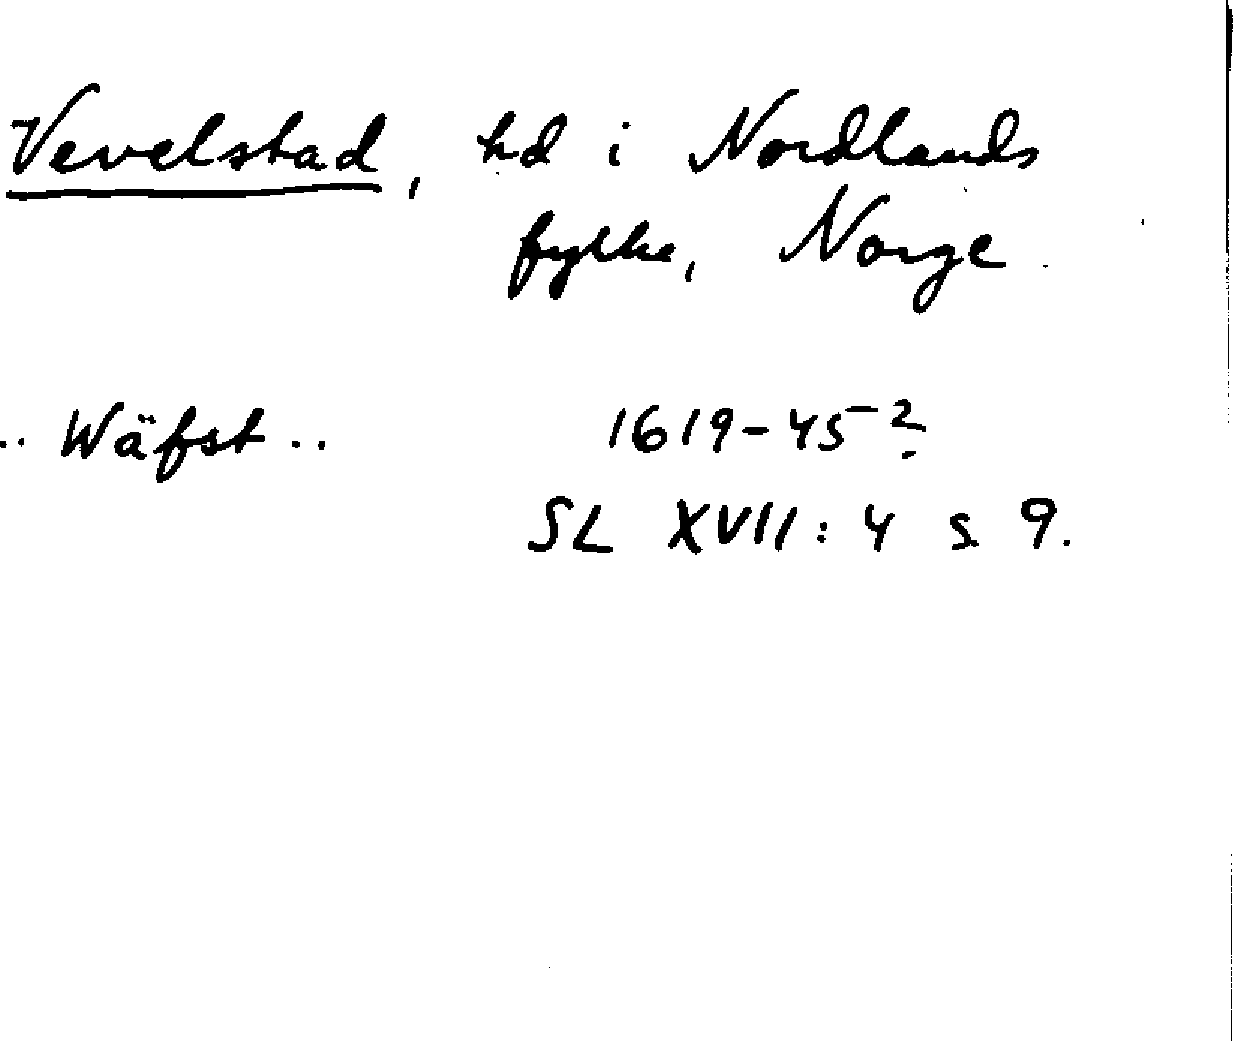 Vevelstad, hd i Nordlands
fylke, Norge.
.. Wäfst .. 1619-45-?
SL XVII: 4 s. 9.